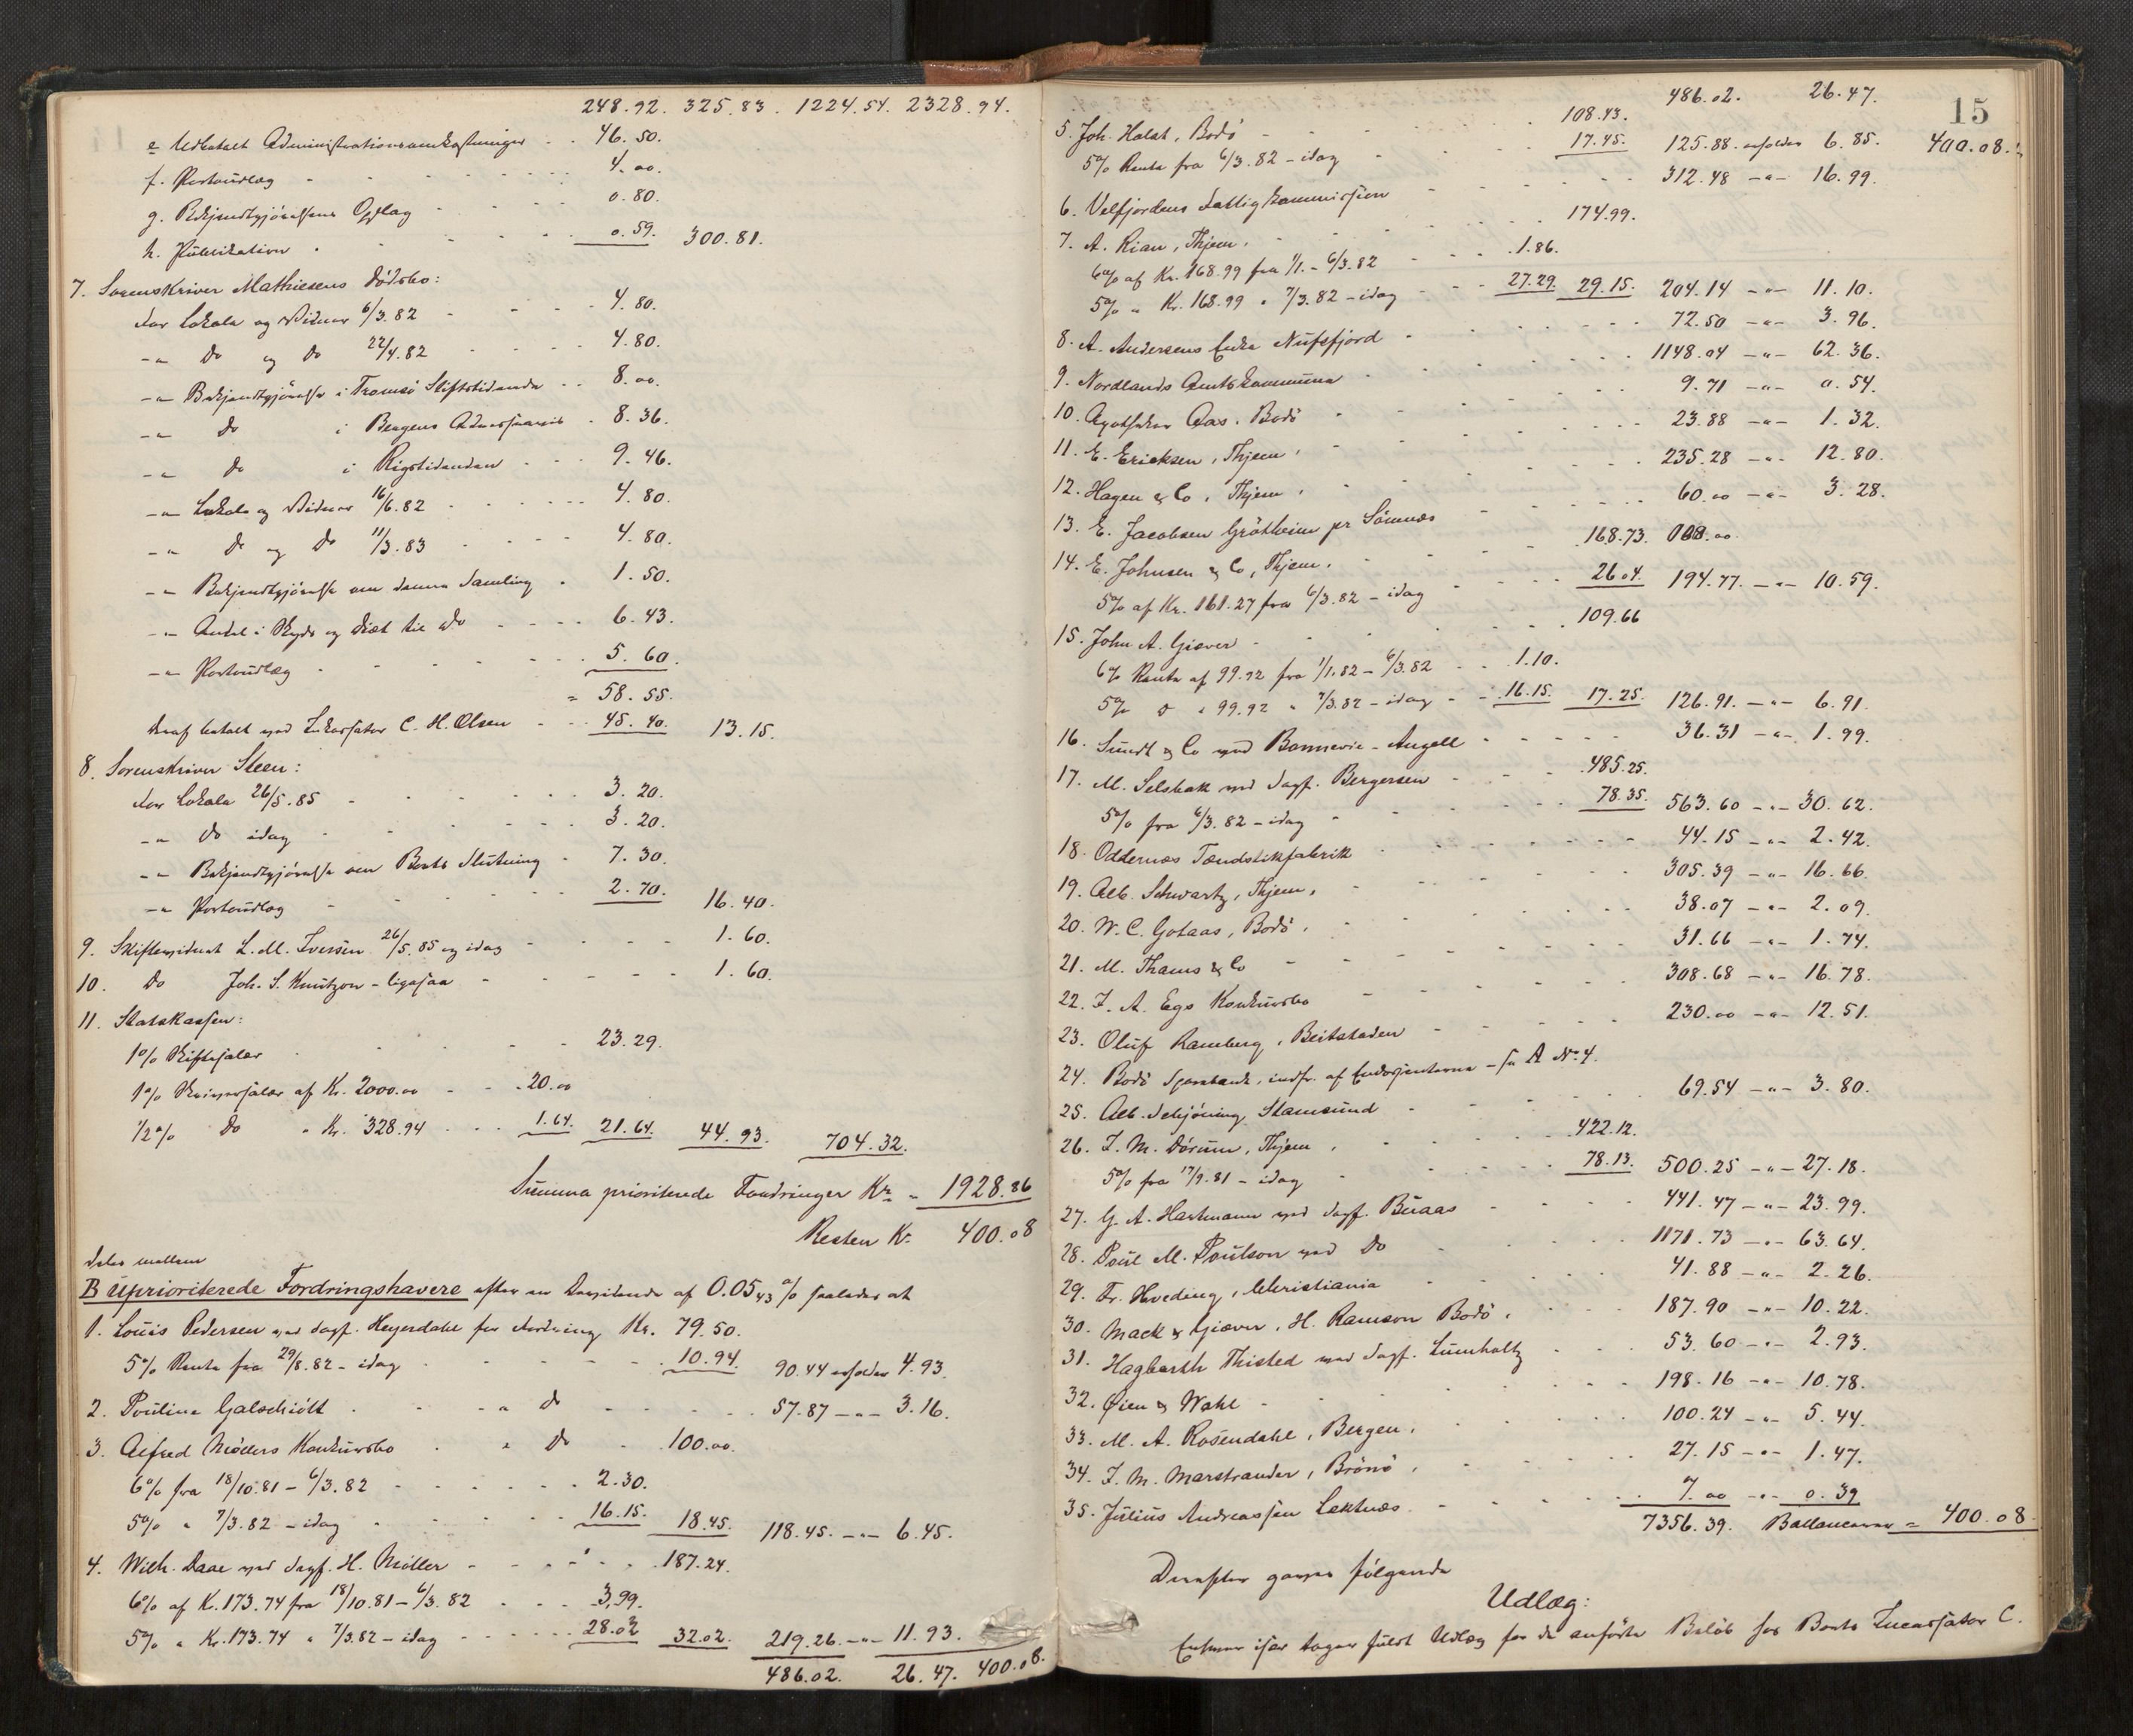 248.92. 325.83. 1224.54. 2328.94.
e Udbetalt Administrationsomkostninger 46.50.
f. Portoudlæg 4.00.
g. Bekjendtgjørelsens Opslag 0.80.
h. Publikation 0.59. 300.81.
7. Sorenskriver Mathiesens Dødsbo:
For Lokale og Vidner 6/3.82 4.80.
-"- Do og Do 22/4.82 4.80.
-"- Bekjendtgjørelse i Tromsø Stiftstidende 8.00.
-"- Do i Bergens Adressecomt. 8.36.
-"- Do i Rigstidenden 9.46.
-"- Lokale og Vidner 16/6.82 4.80.
-"- Do og Do 11/3.83 4.80.
-"- Bekjendtgjørelse om denne Samling 1.50.
-"- Andel i Skyds og Diæt til Do 6.43.
-"- Portoudlæg 5.60.
= 58.55.
Heraf betalt ved Inkassator C. H. Olsen 45.40. 13.15.
8. Sorenskriver Steen:
For Lokale 26/5.85 3.20.
-"- Do idag 3.20.
-"- Bekjendtgjørelse om Boets Slutning 7.30.
-"- Portoudlæg 2.70. 16.40.
9. Skiftevidnet L. M. Iversen 26/5.85 og idag 1.60.
10. Do Joh. S. Knutzon - ligesaa 1.60.
11. Statskassen:
1% Skiftesalær 23.29.
1% Skriversalær af Kr. 2000.00 20.00
1/2% Do " Kr. 328.94 1.64. 21.64. 44.93. 704.32.
Summa prioriterede Fordringer Kr. = 1928.86
Resten Kr. 400.08
deles mellem
B Uprioriterede Fordringshavere efter en Dividende af 0.0543 % saaledes at
1. Louis Pedersen ved Sagf. Heyerdahl for Fordring Kr. 79.50.
5% Rente fra 29/8.82 - idag 10.94. 90.44 erholder 4.93.
2. Pouline Galschiött " Do 57.87 -"- 3.16.
3. Alfred Møllers Konkursbo " Do 100.00.
6% fra 18/10.81 - 6/3.82 2.30.
5% " 7/3.82 - idag 16.15. 18.45. 118.45. -"- 6.45.
4. Wilh. Daae ved Sagf. H. Møller 187.24.
6% af K. 173.74 fra 18/10.81 - 6/3.82 3.99.
5% " Kr. 173.74 " 7/3.82 - idag 28.03 32.02. 219.26. -"- 11.93.
486.02. 26.47. 400.08.
15
486.02. 26.47.
5. Joh. Holst, Bodø 108.43.
5% Rente fra 6/3.82 - idag 17.45. 125.88. erholder 6.85. 400.08.
6. Velfjordens Fattigkommission 312.48 -"- 16.99.
7. A. Rian, Thjem. 174.99.
6% af Kr. 168.99 fra 1/1. - 6/3.82 1.86.
5% " Kr. 168.99 " 7/3.82 - idag 27.29. 29.15. 204.14 -"- 11.10.
8. A. Andersens Enke Nufsfjord 72.50 -"- 3.96.
9. Nordlands Amtskommune 1148.04 -"- 62.36.
10. Apotheker Aas, Bodø 9.71 -"- 0.54.
11. E. Ericksen, Thjem. 23.88 -"- 1.32.
12. Hagen & Co, Thjem. 235.28 -"- 12.80.
13. E. Jacobsen Grøtheim pr Sömnæs 60.00 -"- 3.28.
14. E. Johnsen & Co, Thjem. 168.73.
5% af Kr. 161.27 fra 6/3.82 - idag 26.04. 194.77. -"- 10.59.
15. John A. Giæver 109.66
6% Rente af 99.92 fra 1/1.82 - 6/3.82 1.10.
5% " " 99.92 " 7/3.82 - idag 16.15. 17.25. 126.91. -"- 6.91.
16. Sundt & Co ved Bonnevie-Angell 36.31 -"- 1.99.
17. M. Selsbak ved Sagf. Bergersen 485.25.
5% fra 6/3.82 - idag 78.35. 563.60 -"- 30.62.
18. Oddernæs Tændstikfabrik 44.15 -"- 2.42.
19. Alb. Schwartz, Thjem. 305.39 -"- 16.66.
20. W. C. Gotaas, Bodø. 38.07 -"- 2.09.
21. M. Thams & Co 31.66 -"- 1.74.
22. J. A. Egs Konkursbo 308.68 -"- 16.78.
23. Oluf Ramberg, Beitstaden 230.00 -"- 12.51.
24. Bodø Sparebank, indfr. af Endossenterne - se A No. 4.
25. Alb. Schjöning Stamsund 69.54 -"- 3.80.
26. J. M. Dørum, Thjem. 422.12.
5% fra 17/9.81 - idag 78.13. 500.25 -"- 27.18.
27. G. A. Hartmann ved Sagf. Buaas 441.47 -"- 23.99.
28. Poul M. Poulson ved Do 1171.73 -"- 63.64.
29. Fr. Hveding, Christiania 41.88 -"- 2.26.
30. Mack & Giæver, H. Ramson Bodø. 187.90 -"- 10.22.
31. Hagbarth Thisted ved Sagf. Lumholtz 53.60 -"- 2.93.
32. Øien & Wahl 198.16 -"- 10.78.
33. M. A. Rosendahl, Bergen. 100.24 -"- 5.44.
34. J. M. Marstrander, Brönö. 27.15 -"- 1.47.
35. Julius Andreassen Lektnæs 7.00 -"- 0.39
7356.39. Ballancerer = 400.08
Derefter gjøres følgende
Udlæg:
Enhver især tager fuldt Udlæg for de anførte Beløb hos Boets Incassator C.